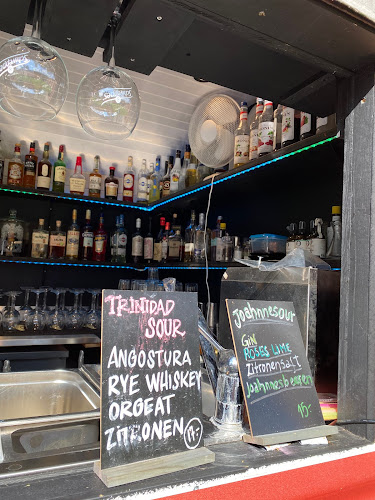 TRINIDAD
SOUR
ANGOSTURA
RYE WHISKEY
ORGEAT
ZITRONEN
Joahnnesour
GIN
ROSES LIME
Zitronensaft
Joahnnesbeeren
15.-